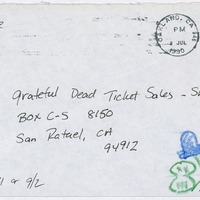 OAKLAND, CA
PM
JUL
1990
Grateful Dead Ticket Sales -
Box C-S 8150
San Rafael, CA
94912
& 9/2